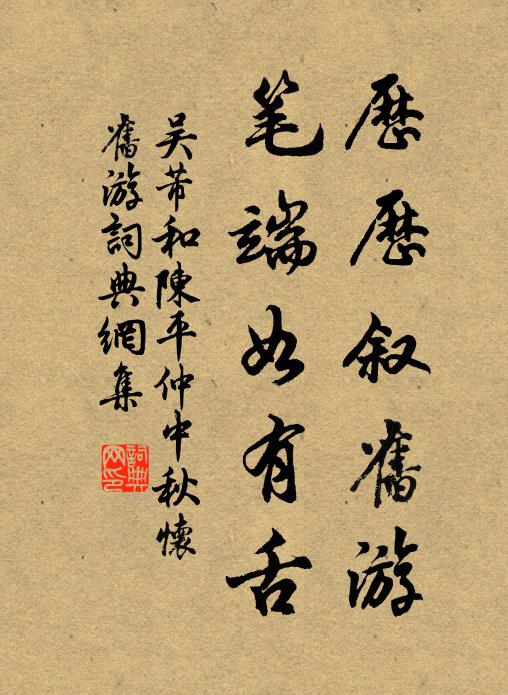 歷歷叙舊游
笔端如有舌
吴芾和陳平仲中秋懷
舊游詞典網集
詞典
网印